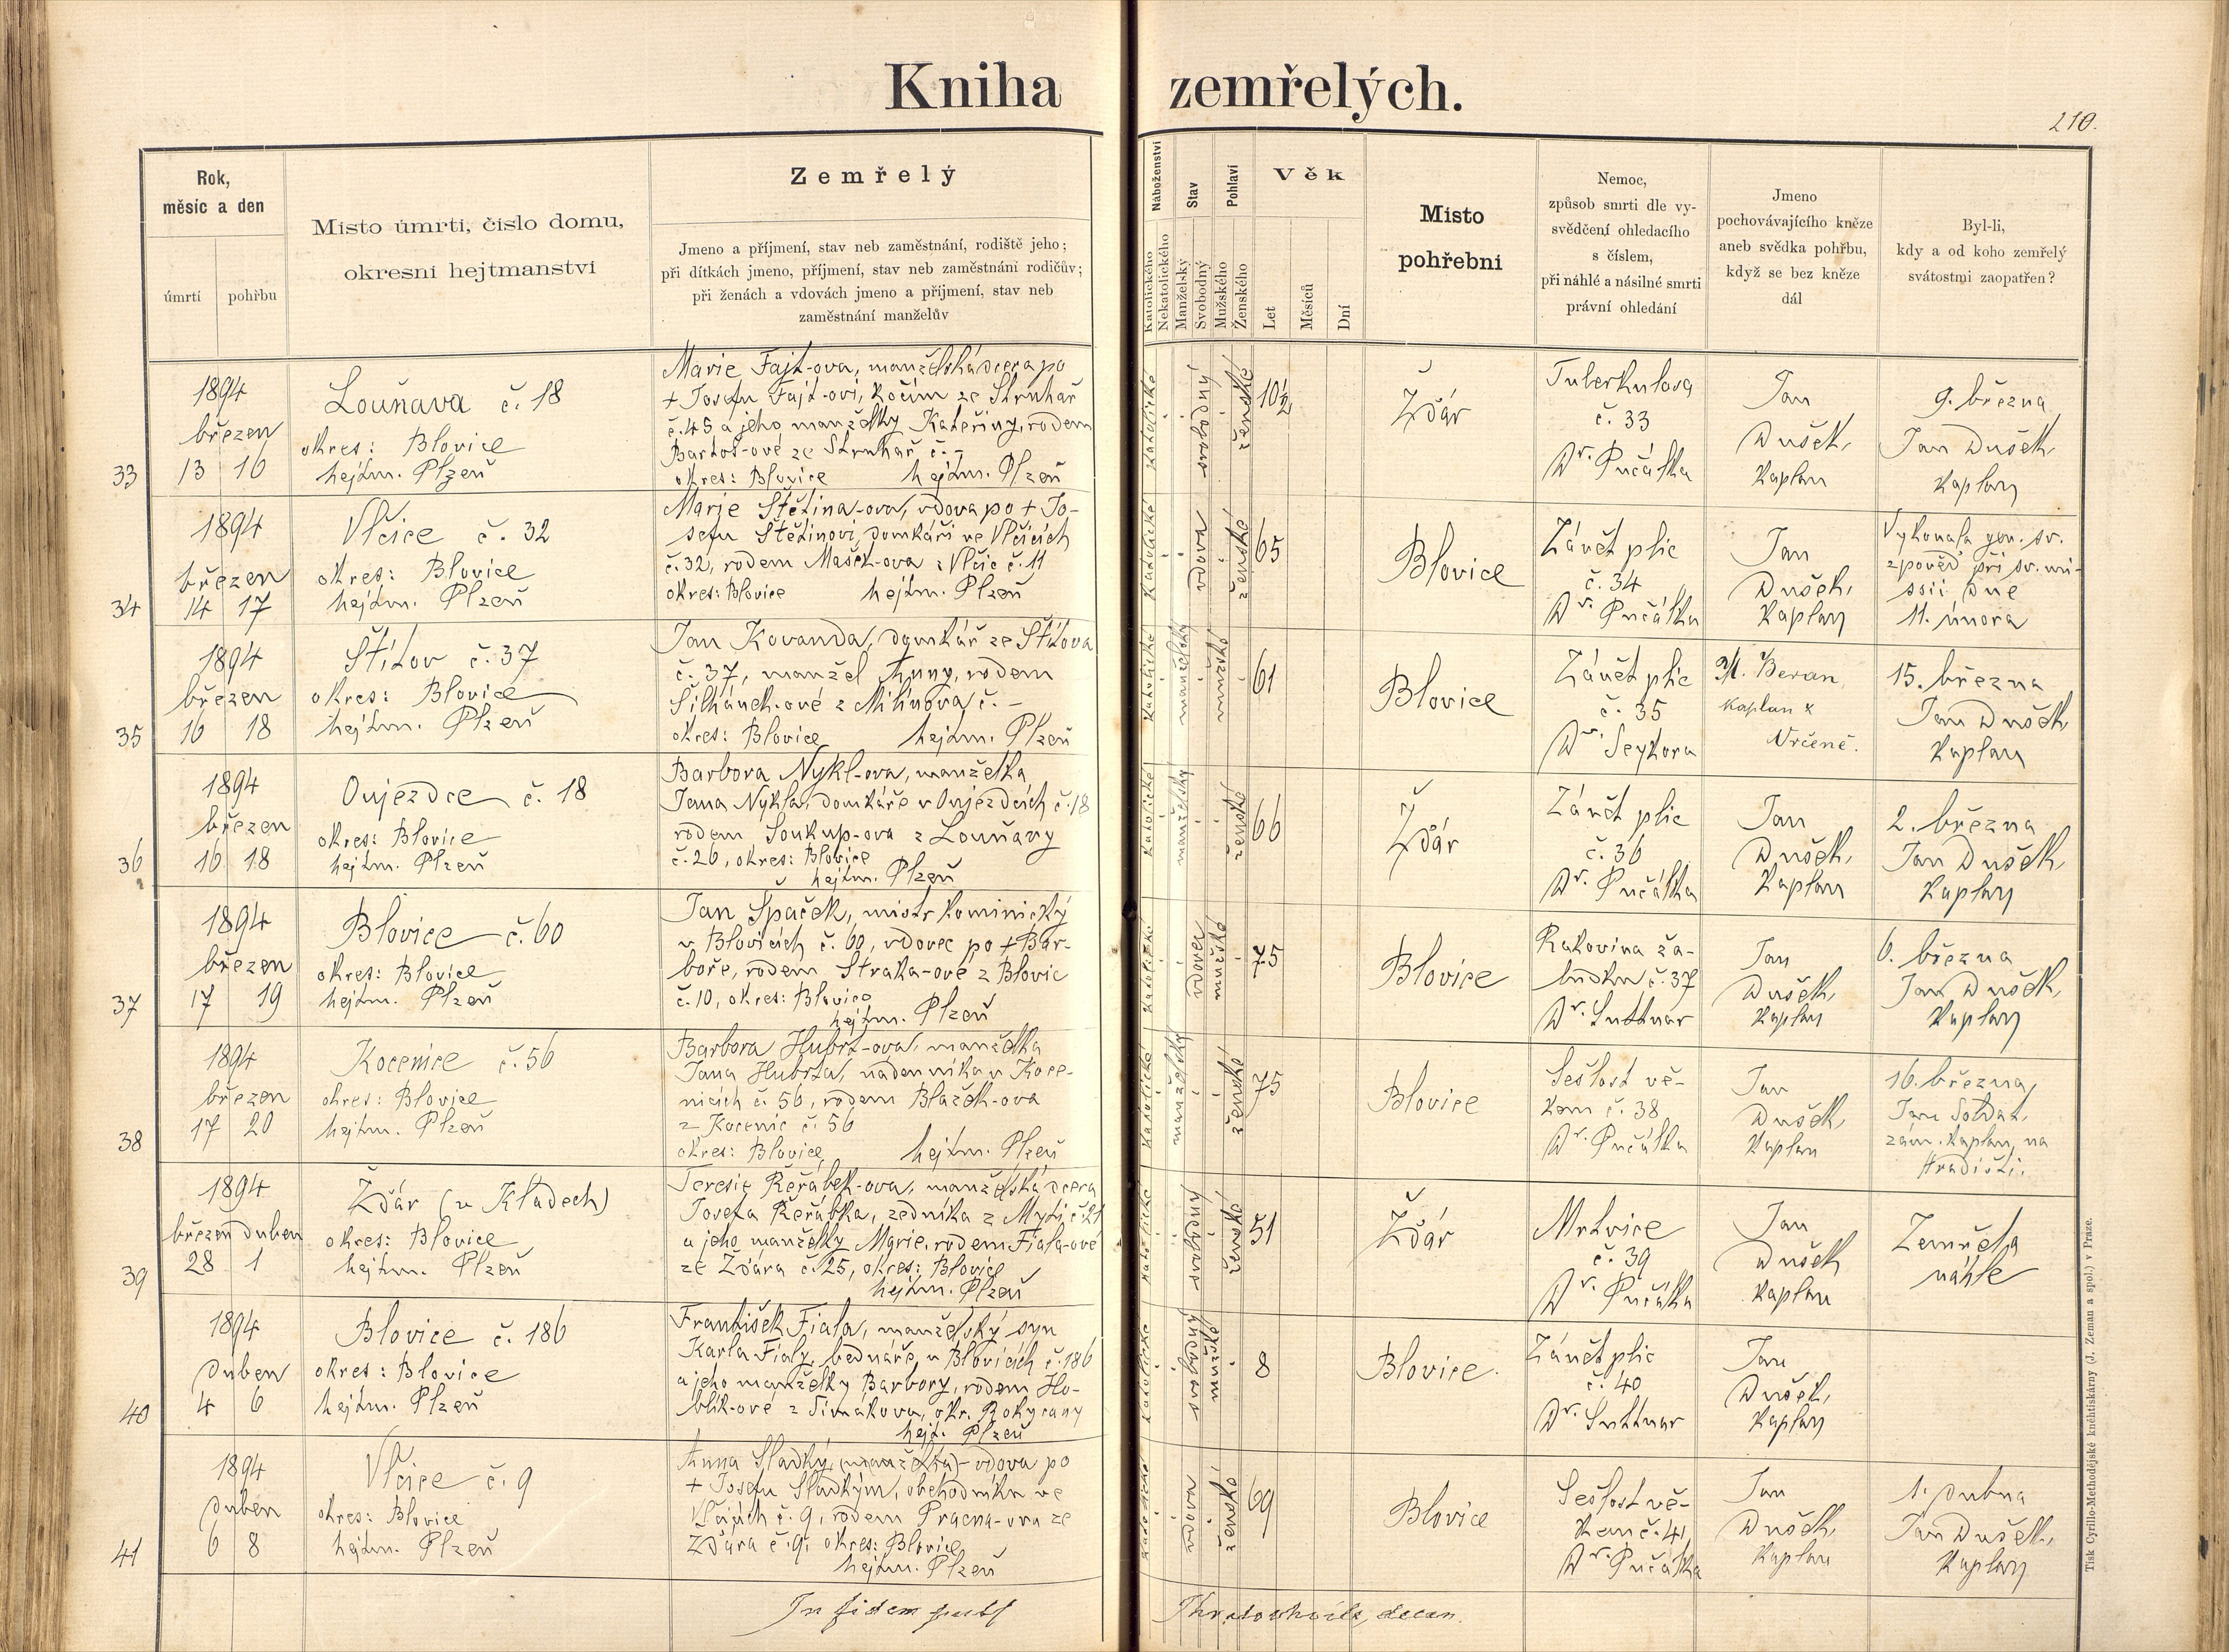 Kniha zemřelých.
210.
Rok,
měsíc a den
úmrtí
pohřbu
Místo úmrtí, číslo domu,
okresní hejtmanství
Zemřelý
Jmeno a příjmení, stav neb zaměstnání, rodiště jeho;
při dítkách jmeno, příjmení, stav neb zaměstnání rodičův;
při ženách a vdovách jmeno a příjmení, stav neb
zaměstnání manželův
Náboženství
Katolického
Nekatolického
Stav
Manželský
Svobodný
Pohlaví
Mužského
Ženského
Věk
Let
Měsíců
Dní
Místo
pohřební
Nemoc,
způsob smrti dle vy-
svědčení ohledacího
s číslem,
při náhlé a násilné smrti
právní ohledání
Jmeno
pochovávajícího kněze
aneb svědka pohřbu,
když se bez kněze
dál
Byl-li,
kdy a od koho zemřelý
svátostmi zaopatřen?
33
1894
březen
13 16
Louňava č. 18
okres: Blovice
hejtm. Plzeň
Marie Fajt-ova, manželská dcera po
+ Josefu Fajt-ovi, kočím ze Struhař
č. 45 a jeho manželky Kateřiny, rodem
Bartoš-ové ze Struhař č. -
okres: Blovice hejtm. Plzeň
katolické
svobodný
ženské
10½
Ždár
Tuberkulosa
č. 33
Dr. Pučálka
Jan
Dušek,
kaplan
9. března
Jan Dušek,
kaplan
34
1894
březen
14 17
Vlčice č. 32
okres: Blovice
hejtm. Plzeň
Marie Štětina-ova, vdova po + Jo-
sefu Štětinovi, domkáři ve Vlčicích
č. 32, rodem Mašek-ova z Vlčic č. 11
okres: Blovice hejtm. Plzeň
katolické
vdova
ženské
65
Blovice
Zánět plic
č. 34
Dr. Pučálka
Jan
Dušek,
kaplan
Vykonala gen. sv.
zpověď při sv. mi-
ssii dne
11. února
35
1894
březen
16 18
Štítov č. 37
okres: Blovice
hejtm. Plzeň
Jan Kovanda, domkář ze Štítova
č. 37, manžel Anny, rodem
Šilhánek-ové z Milinova č. -
okres: Blovice hejtm. Plzeň
katolické
manželský
mužské
61
Blovice
Zánět plic
č. 35
Dr. Seykora
M. Beran,
kaplan z
Vrčeně.
15. března
Jan Dušek,
kaplan
36
1894
březen
16 18
Oujezdce č. 18
okres: Blovice
hejtm. Plzeň
Barbora Nykl-ova, manželka
Jana Nykla, domkáře v Oujezdcích č. 18
rodem Soukup-ova z Louňavy
č. 26, okres: Blovice
hejtm. Plzeň
katolické
manželský
ženské
66
Ždár
Zánět plic
č. 36
Dr. Pučálka
Jan
Dušek,
kaplan
2. března
Jan Dušek,
kaplan
37
1894
březen
17 19
Blovice č. 60
okres: Blovice
hejtm. Plzeň
Jan Špaček, mistr kominický
v Blovicích č. 60, vdovec po + Bar-
boře, rodem Straka-ové z Blovic
č. 10, okres: Blovice
hejtm. Plzeň
katolické
vdovec
mužské
75
Blovice
Rakovina ža-
ludku č. 37
Dr. Suttnar
Jan
Dušek,
kaplan
6. března
Jan Dušek,
kaplan
38
1894
březen
17 20
Kocenice č. 56
okres: Blovice
hejtm. Plzeň
Barbora Hubrt-ova, manželka
Jana Hubrta, nádenníka v Koce-
nicích č. 56, rodem Blažek-ova
z Kocenic č. 56
okres: Blovice hejtm. Plzeň
katolické
manželský
ženské
75
Blovice
Sešlost vě-
kem č. 38
Dr. Pučálka
Jan
Dušek,
kaplan
16. března,
Jan Soldat,
zám. kaplan na
Hradišti.
39
1894
březen duben
28 1
Ždár (u Kladech)
okres: Blovice
hejtm. Plzeň
Teresie Řeřábek-ova, manželská dcera
Josefa Řeřábka, zedníka z Mýti č. 21
a jeho manželky Marie, rodem Fiala-ové
ze Ždára č. 25, okres: Blovice
hejtm. Plzeň
katolické
svobodný
ženské
51
Ždár
Mrtvice
č. 39
Dr. Pučálka
Jan
Dušek
kaplan
Zemřela
náhle
40
1894
duben
4 6
Blovice č. 186
okres: Blovice
hejtm. Plzeň
František Fiala, manželský syn
Karla Fialy, bednáře v Blovicích č. 186
a jeho manželky Barbory, rodem Ho-
blík-ové z Simakova, okr. Rokycany
hejt. Plzeň
katolické
svobodný
mužské
8
Blovice.
Zánět plic
č. 40
Dr. Suttnar
Jan
Dušek,
kaplan
41
1894
duben
6 8
Vlčice č. 9
okres: Blovice
hejtm. Plzeň
Anna Sladký, manželka-vdova po
+ Josefu Sladkým, obchodníku ve
Vlčicích č. 9, rodem Pracna-ova ze
Ždára č. 9, okres: Blovice
hejtm. Plzeň
katolické
vdova
ženské
69
Blovice
Sešlost vě-
kem č. 41
Dr. Pučálka
Jan
Dušek,
kaplan
1. dubna
Jan Dušek,
kaplan
In fidem publ
decan.
Tisk Cyrillo-Methodějské kněhtiskárny (J. Zeman a spol.) v Praze.